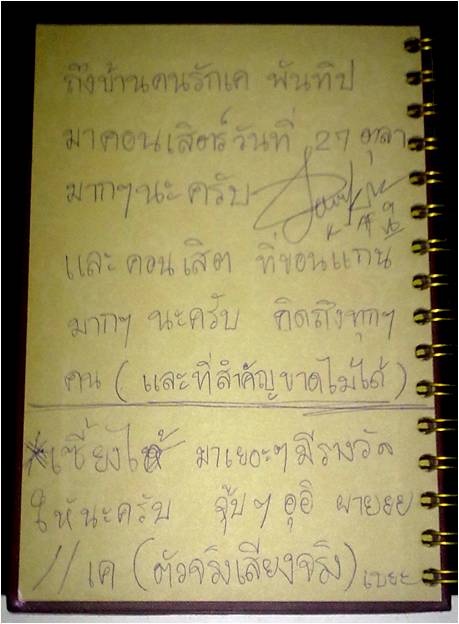 ถึงบ้านคนรักเค พันทิป
มาคอนเสิตร์วันที่ 27 ตุลา
มากๆนะครับ
และคอนเสิต ที่ขอนแก่น
มากๆ นะครับ คิดถึงทุกๆ
คน (และที่สำคัญขาดไม่ได้)
*เซี้ยงไฮ้ มาเยอะๆมีรางวัล
ให้นะครับ จุ๊บๆ อุอิ ผายยย
// เค (ตัวจริงเสียงจริง)